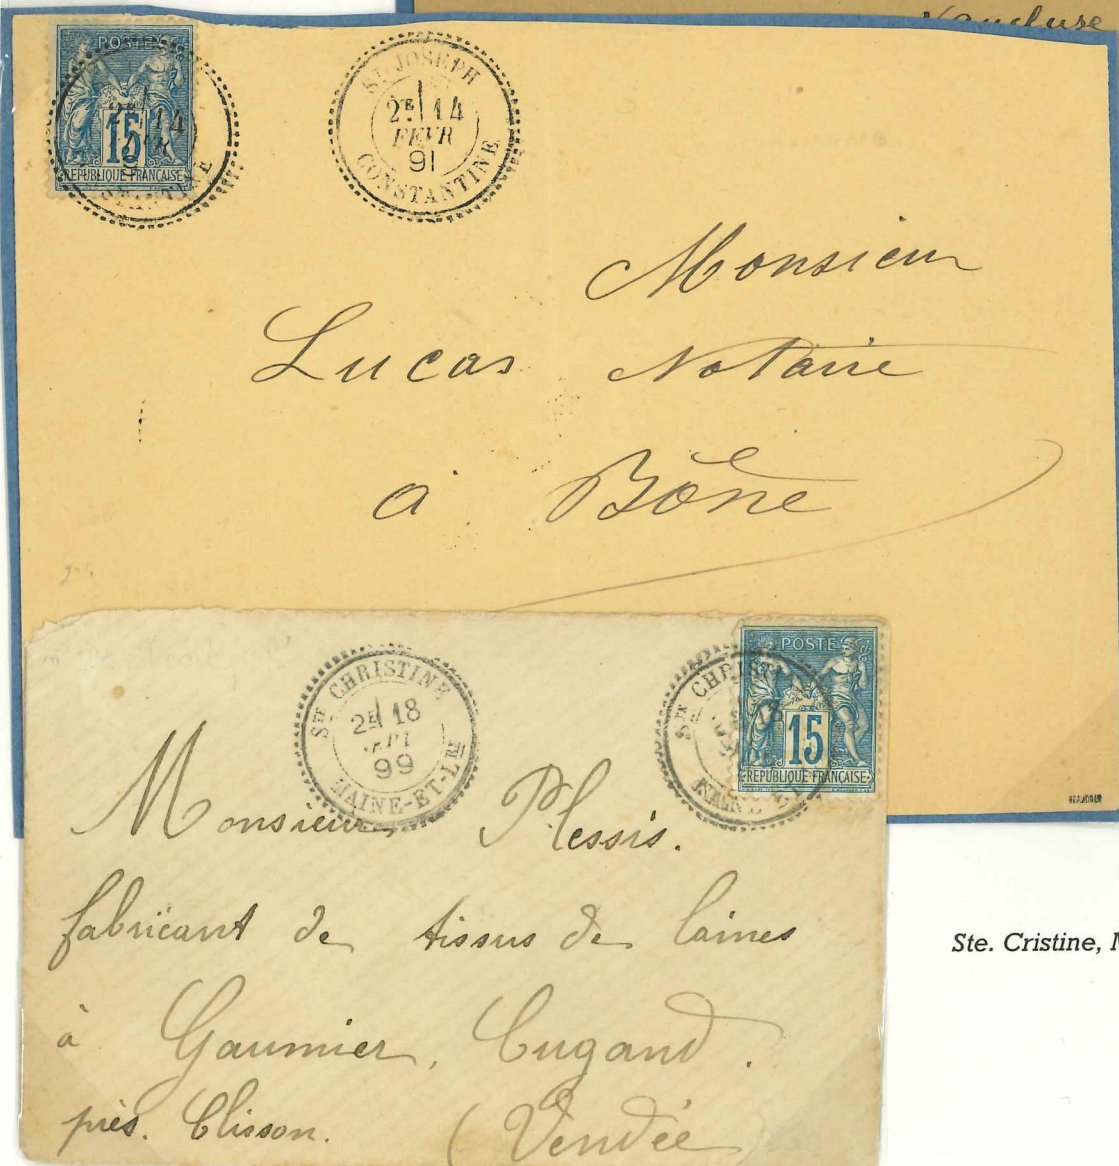 Vaucluse
POSTES
15
REPUBLIQUE FRANÇAISE
ST JOSEPH
2E 14
FEVR
91
CONSTANTINE
Monsieur
Lucas Notaire
à Bône
STE CHRISTINE
2E 18
99
MAINE-ET-LRE
STE CHRIST
18
POSTES
15
REPUBLIQUE FRANÇAISE
BEAUDOIN
Monsieur Plessis.
fabricant de tissus de laines
à Gaumier, Cugand.
près. Clisson. (Vendée
Ste. Cristine,